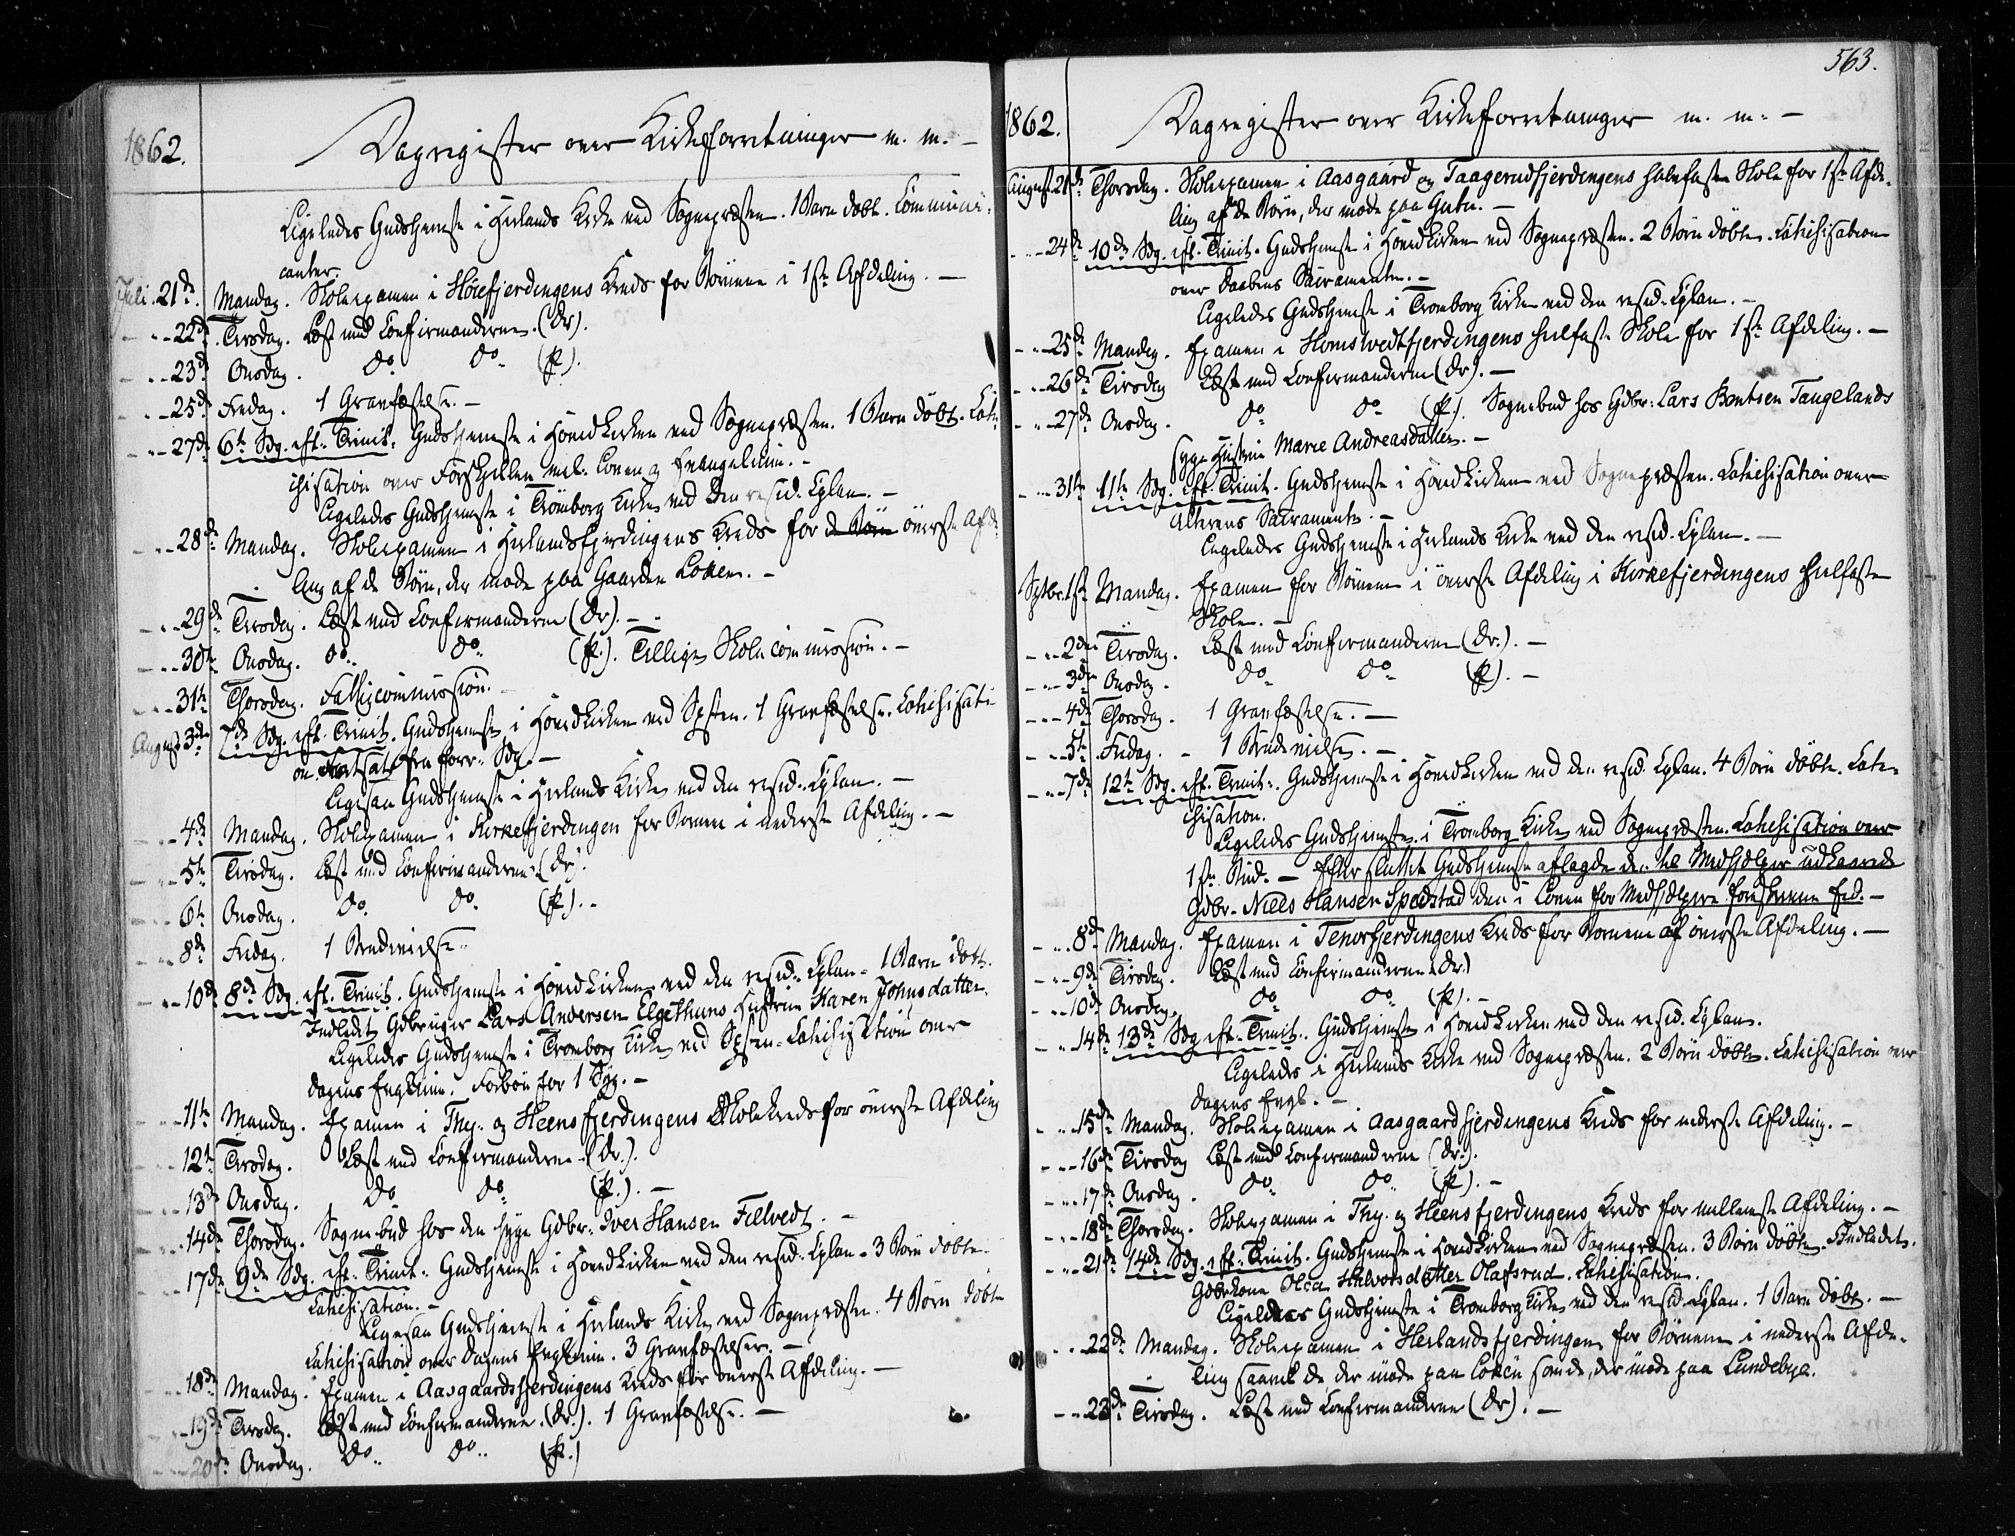 1862.
Dagregister over Kirkeforretninger m. m. –
Ligeledes Gudstjeneste i Herlands Kirke ved Sognepræsten. 1 Barn døbt. Communi-
canter.
Juli. 21de. Mandag. Skoleexamen i Høiefjerdingens Kreds for Børnene i 1ste Afdeling. –
– 22de. Tirsdag. Læst med Confirmanderne. (Dr).
– 23de Onsdag. do do (p).
– 25de Fredag. 1 Gravfæstelse. –
– 27de 6te Sdg. eft. Trinit. Gudstjeneste i Hovedkirken ved Sognepræsten. 1 Barn døbt. Cate-
chisation over Forskjellen mel. Loven og Evangelium. –
Ligeledes Gudstjeneste i Trömborg Kirke ved den resid. Cplan. –
– 28de Mandag. Skoleexamen i Herlandsfjerdingens Kreds for de Børn överste Afde-
ling af de Børn, der møde paa Gaarden Löken. –
– 29de Tirsdag. Læst med Confirmanderne (Dr). –
– 30te Onsdag. do. do. (p.). Tillige Skolecommission. –
– 31te Thorsdag. Fattigcommission.
August 3die 7de Sdg. eft. Trinit. Gudstjeneste i Hovedkirken ved Spsten. 1 Gravfæstelse. Catechisati-
on fortsat fra forr. Sdg. –
Ligesaa Gudstjeneste i Herlands Kirke ved den resid. Cplan. –
– 4de Mandag. Skoleexamen i Kirkefjerdingen for Børnene i nederste Afdeling. –
– 5te Tirsdag. Læst med Confirmanderne (Dr).
– 6te Onsdag. do. do. (p). –
– 8de Fredag. 1 Brudevielse.
– 10de 8de Sdg. eft. Trinit. Gudstjeneste i Hovedkirken ved den resid. Cplan – 1 Barn døbt.
Indledt Gdbruger Lars Andersen Elgethuns Hustru Karen Johnsdatter.
Ligeledes Gudstjeneste i Tromborg Kirke ved Spsten – Catechisation over
dagens Evglium. Forbön for 1 Syg. –
– 11te Mandag. Examen i Thy- og Heensfjerdingens Skolekreds for överste Afdeling
– 12te Tirsdag. Læst med Confirmanderne. (Dr.).
– 13de Onsdag. do. do. (p.). –
– 14de Thorsdag. Sognebud hos den syge Gdbr. Iver Hansen Fillvedt. –
– 17de 9de Sdg. eft. Trinit. Gudstjeneste i Hovedkirken ved den resid. Cplan – 3 Børn døbte.
Catechisation. –
Ligesaa Gudstjeneste i Herlands Kirke ved Sognepræsten. 4 Børn døbte
Catechisation over dagens Evglium. 3 Gravfæstelser. –
– 18de Mandag. Examen i Aasgaardsfjerdingens Kreds for överste Afdeling. –
– 19de Tirsdag. Læst med Confirmanderne. (Dr.). 1 Gravfæstelse. –
– 20de Onsdag. do. do. (p.)
563.
1862.
Dagregister over Kirkeforretninger m. m. –
August. 21de Thorsdag. Skoleexamen i Aasgaard og Taagerudfjerdingens halvfaste Skole for 1ste Afde-
ling af de Børn, der møde paa Gutu. –
– 24de 10de Sdg. eft. Trinit. Gudstjeneste i Hovedkirken ved Sognepræsten. 2 Børn döbte. Catechisation
over Daabens Sacramente. –
Ligeledes Gudstjeneste i Tromborg Kirke ved den resid. Cplan. –
– 25de Mandag. Examen i Homstvedtfjerdingens halvfaste Skole for 1ste Afdeling. –
– 26de Tirsdag Læst med Confirmanderne (Dr). –
– 27de Onsdag. do do (p.). Sognebud hos Gdbr: Lars Bentsen Taugelands
syge Hustru Marie Andreasdatter. –
– 31te 11te Sdg. eft. Trinit. Gudstjeneste i Hovedkirken ved Sognepræsten. Catechisation over
Alterens Sacramente. –
Ligeledes Gudstjeneste i Herlands Kirke ved den resid. Cplan. –
Septbr. 1ste Mandag. Examen for Børnene i överste Afdeling i Kirkefjerdingens halvfaste
Skole. –
– 2den Tirsdag. Læst med Confirmanderne (Dr.). –
– 3die Onsdag. do do (p). –
– 4de Thorsdag. 1 Gravfæstelse. –
– 5te Fredag. – 1 Brudevielse. –
– 7de 12te Sdg. eft. Trinit. Gudstjeneste i Hovedkirken ved den resid. Cplan. 4 Børn döbte. Cate-
chisation.
Ligeledes Gudstjeneste i Tromborg Kirke ved Sognepræsten. Catechisation over
1ste Bud. – Efter sluttet Gudstjeneste aflagde den til Medhjælper udkaarede
Gdbr. Niels Hansen Spedstad den i Loven for Medhjælpere foreskrevne Eed. –
– 8de Mandag. Examen i Tenorfjerdingens Kreds for Børnene af överste Afdeling. –
– 9de Tirsdag. Læst med Confirmanderne (Dr.)
– 10de Onsdag. do do (p). –
– 14de 13de Sdg eft. Trinit. Gudstjeneste i Hovedkirken ved den resid. Cplan.
Ligeledes i Herlands Kirke ved Sognepræsten. 2 Børn döbte. Catechisation over
dagens Evgl. –
– 15de Mandag. Skoleexamen i Aasgaardfjerdingens Kreds for nederste Afdeling. –
– 16de Tirsdag Læst med Confirmanderne (Dr.).
– 17de Onsdag. do do (p). –
– 18de Thorsdag. Skoleexamen i Thy- og Heensfjerdingens Kreds for mellemste Afdeling. –
– 21de 14de Sdg. eft. Trinit. Gudstjeneste i Hovedkirken ved Sognepræsten. 3 Børn döbte. Indledet
Gdbrkone Olea Halvorsdatter Olafsrud. Catechisation.
Ligeledes Gudstjeneste i Tromborg Kirke ved den resid. Cplan. 1 Barn döbt. –
– 22de Mandag. Skoleexamen i Herlandsfjerdingen for Børnene i nederste Afde-
ling saavel de, der møde paa Löken som de, der møde paa Lundebye.
– 23de Tirsdag. Læst med Confirmanderne (Dr). –